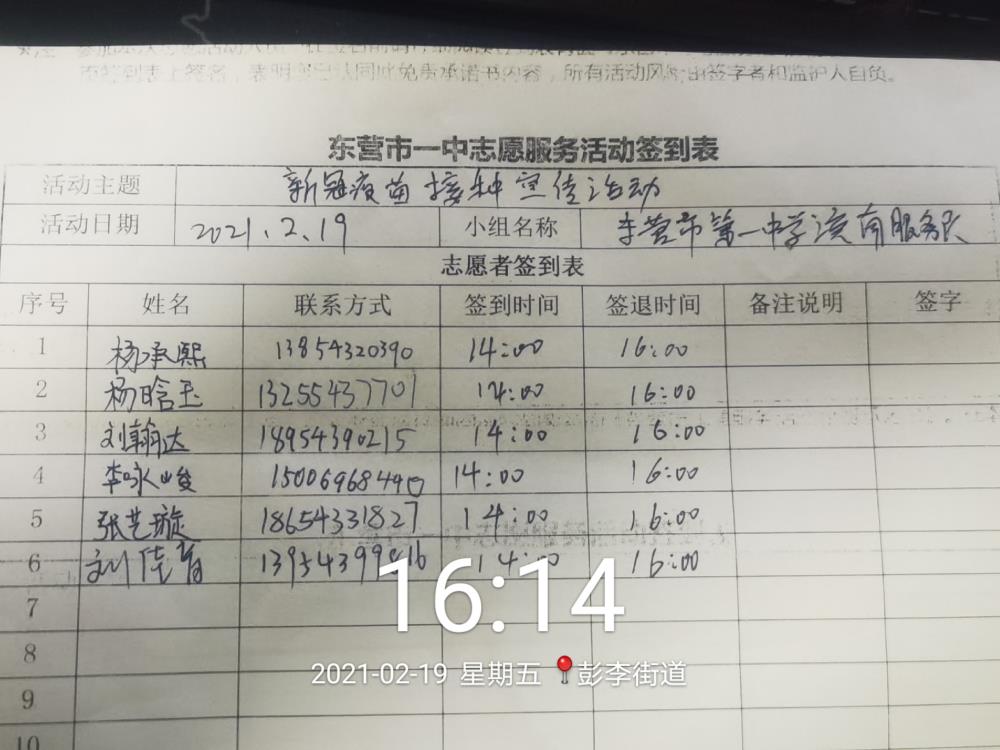 而签到表上签名，表明自己认同此免责承诺书内容，所有活动风险由签字者和监护人自负。
东营市一中志愿服务活动签到表
活动主题 新冠疫苗接种宣传活动
活动日期 2021.2.19 小组名称 东营市第一中学 服务队
志愿者签到表
序号 姓名 联系方式 签到时间 签退时间 备注说明 签字
1 杨承熙 13854320390 14:00 16:00
2 杨晗玉 13255437701 14:00 16:00
3 刘翰达 18954390215 14:00 16:00
4 李咏峻 15006968440 14:00 16:00
5 张艺璇 18654331827 14:00 16:00
6 刘佳育 13954399816 14:00 16:00
7
8
9
10
16:14
2021-02-19 星期五 彭李街道